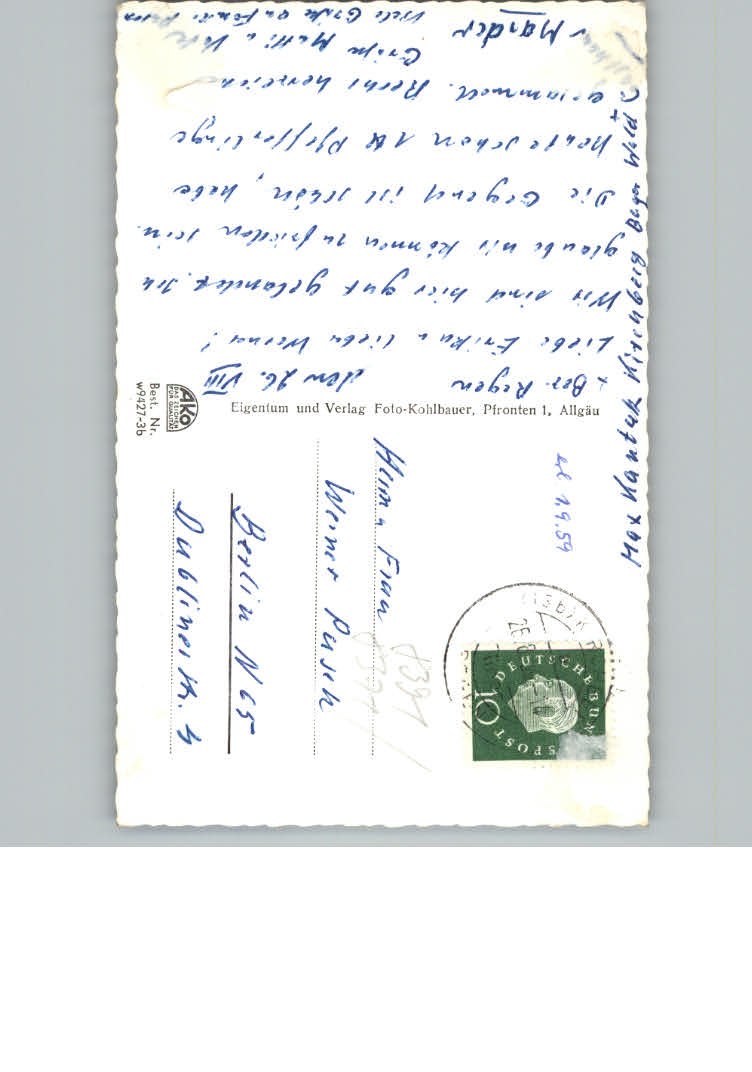 Max Kantak Kirschberg Bayr Wald
+ Bez. Regen den 26. VIII
Liebe Erika u lieber Werner!
Wir sind hier gut gelandet. Ich
glaube wir können zufrieden sein.
Die Gegend ist schön, habe
heute schon 1 Pfefferlinge
gesammelt. Recht herzliche
Grüße Mutti u Vati
Viele Grüße an Familie
Marder
Eigentum und Verlag Foto-Kohlbauer, Pfronten 1, Allgäu
AKO
DAS ZEICHEN
FÜR QUALITÄT
Best. Nr.
w9427-3b
erl 1.9.59
Herrn u Frau
Werner Pasch
Berlin N 65
Dublinerstr. 4
8391
8391
DEUTSCHE BUNDESPOST
10